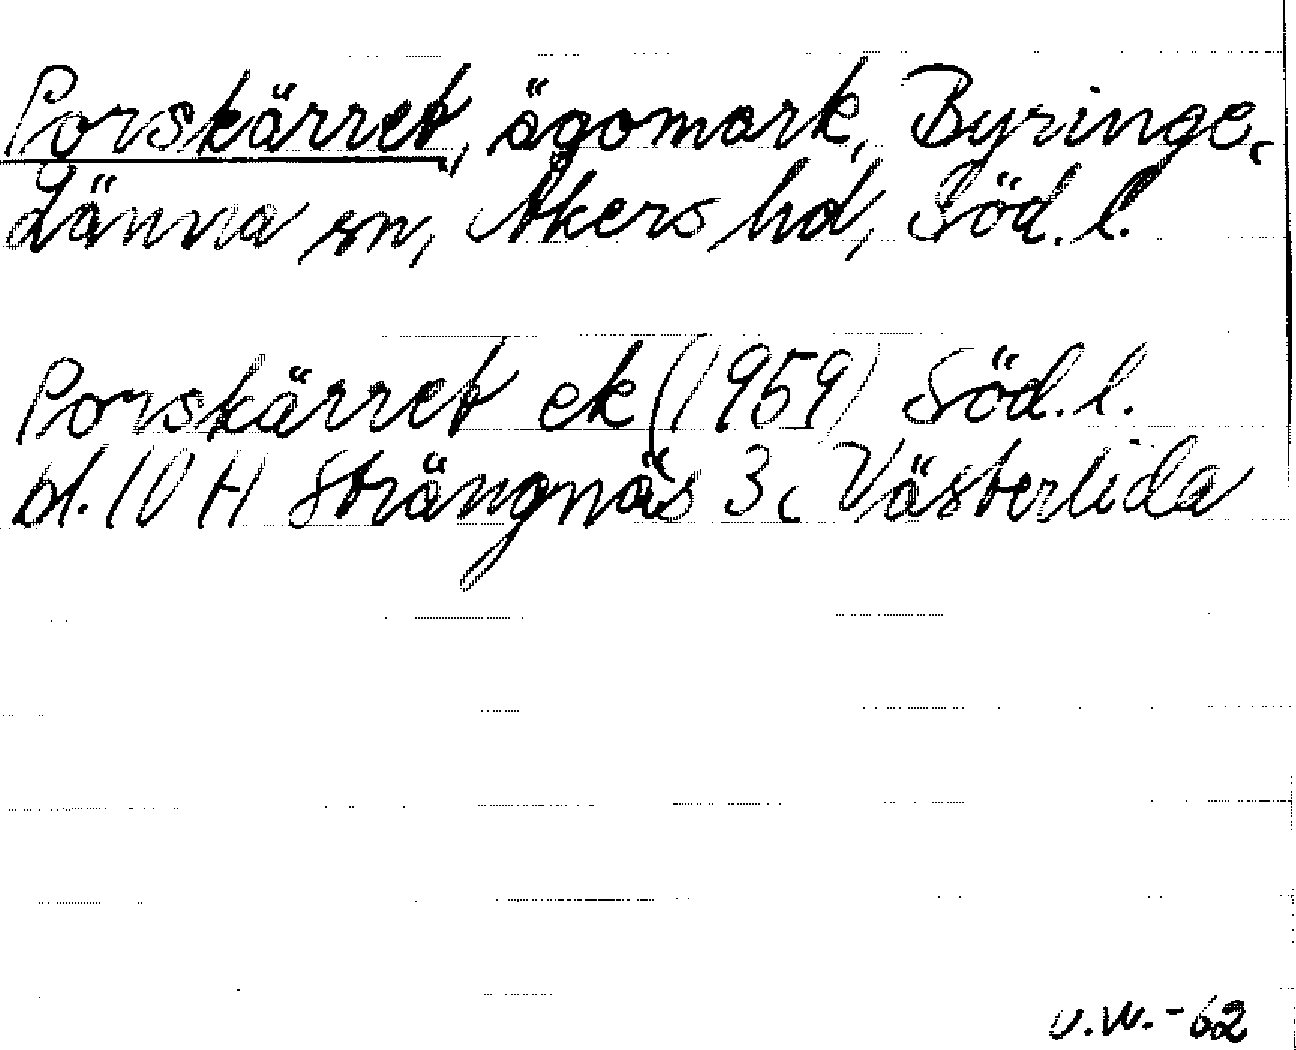 Porskärret, ägomark, Byringe,
Länna sn, Åkers hd, Söd. l.
Porskärret ek (1959) Söd. l.
bl. IV H Strängnäs 3, Västerlida
U.W.-62